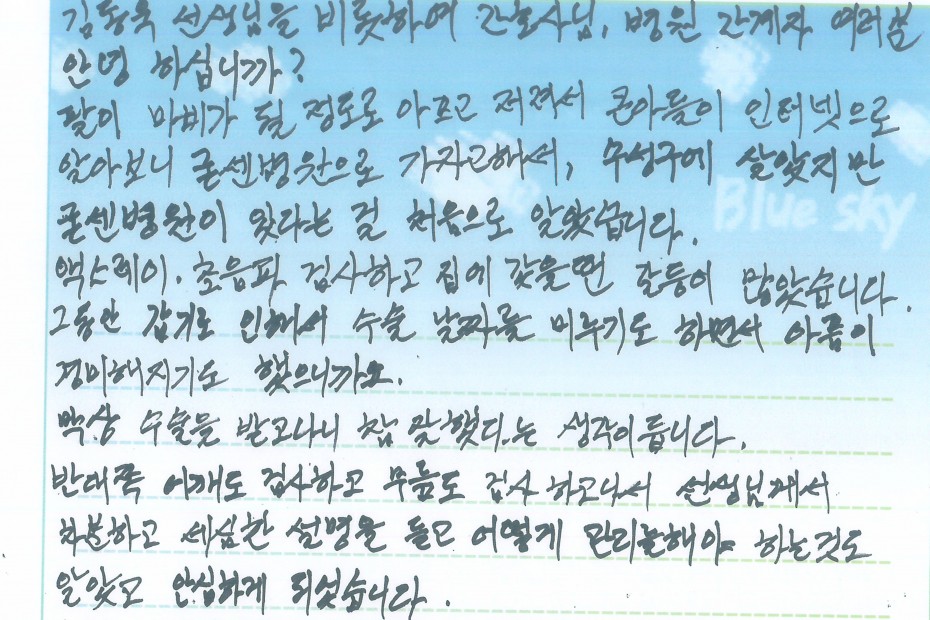 김동욱 선생님을 비롯하여 간호사님, 병원 관계자 여러분
안녕 하십니까?
팔이 마비가 될 정도로 아프고 저려서 큰아들이 인터넷으로
알아보니 굳센병원으로 가자고해서, 수성구에 살았지만
굳센병원이 있다는 걸 처음으로 알았습니다.
Blue sky
액스레이. 초음파 검사하고 집에 갔을때 갈등이 많았습니다.
그동안 감기로 인해서 수술 날짜를 미루기도 하면서 아픔이
경미해지기도 했으니까요.
막상 수술을 받고나니 참 잘했다는 생각이듭니다.
반대쪽 어깨도 검사하고 무릎도 검사 하고나서 선생님께서
차분하고 세심한 설명을 듣고 어떻게 관리를해야 하는것도
알았고 안심하게 되었습니다.